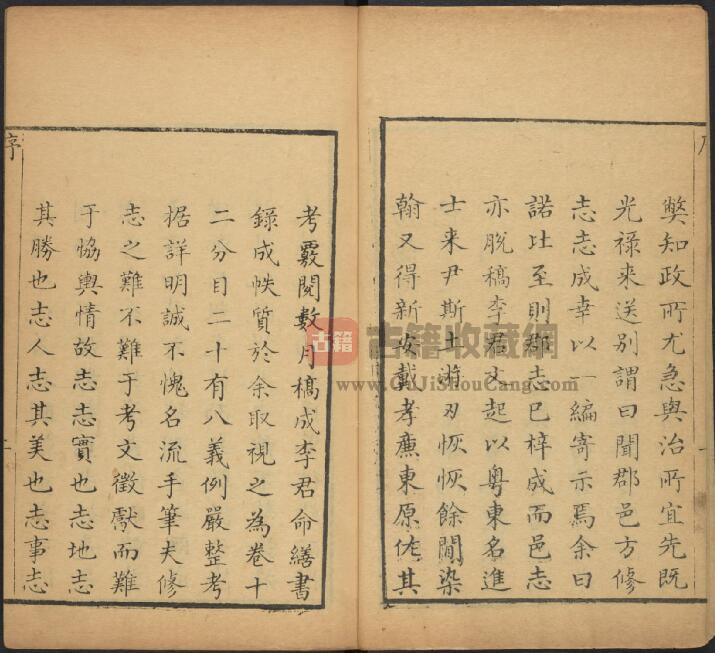 弊知政所尤急與治所宜先既
光祿来送别謂曰聞郡邑方修
志志成幸以一編寄示焉余曰
諾比至則郡志已梓成而邑志
亦脫稿李君文起以粤東名進
士来尹斯土游刃恢恢餘閒染
翰又得新安戴孝廉東原佐其
考覈閱數月稿成李君命繕書
錄成帙質於余取視之為卷十
二分目二十有八義例嚴整考
据詳明誠不愧名流手筆夫修
志之難不難于考文徵獻而難
于恊輿情故志志實也志地志
其勝也志人志其美也志事志
序
古籍
古籍收藏網
www.GuJiShouCang.com